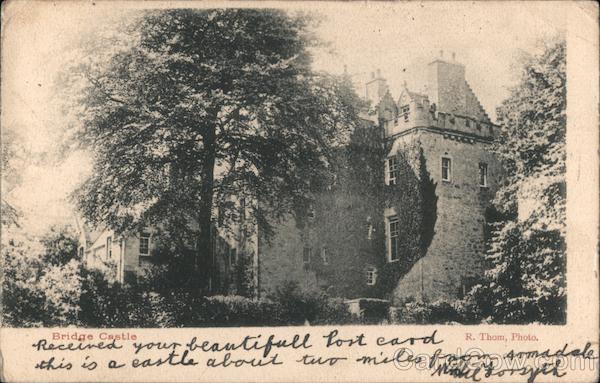 Bridge Castle
R. Thom, Photo.
Received your beautifull Post card
this is a castle about two miles from Armadale
Forsyth